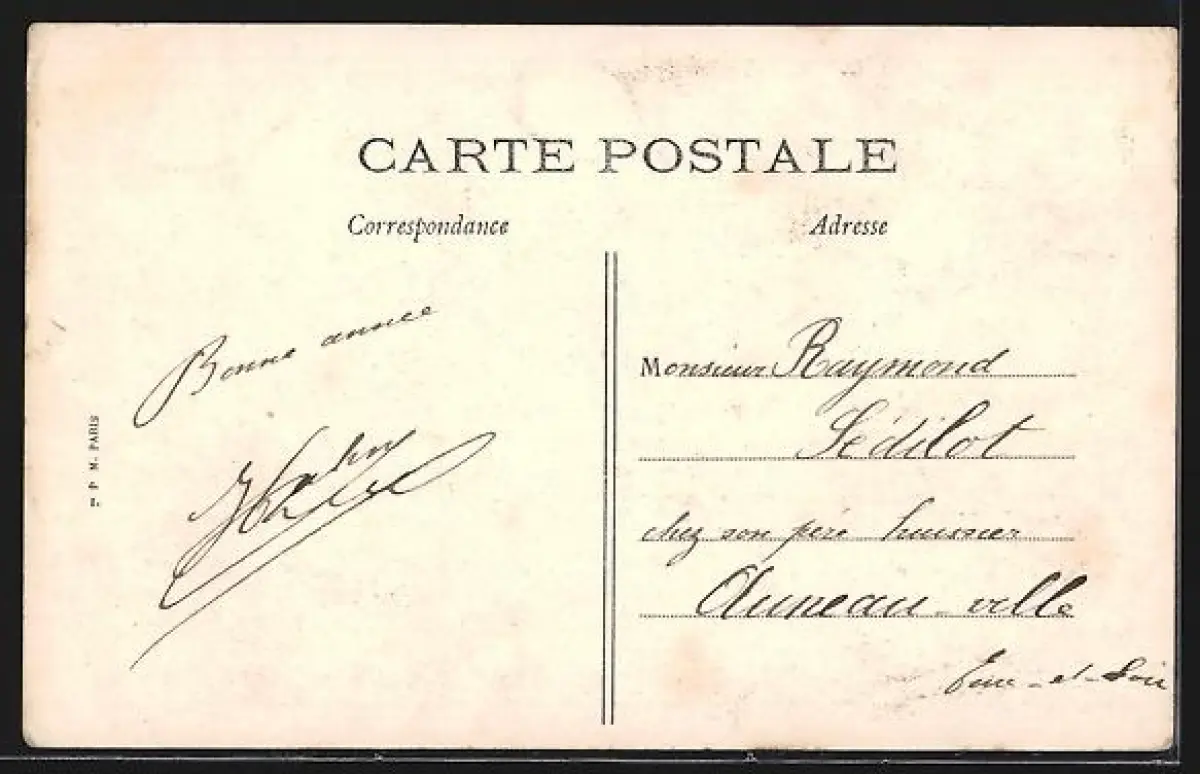 CARTE POSTALE
Correspondance
Adresse
Bonne année
P M. PARIS
Monsieur Raymond
Sédilot
chez son père huissier
Auneau-ville
Eure-et-Loir